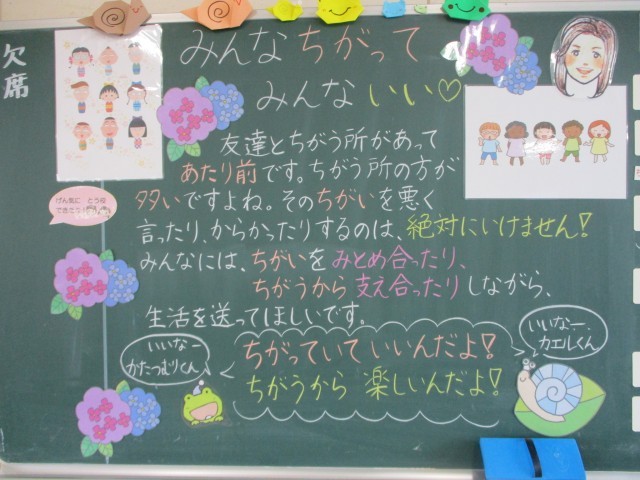 欠席
みんなちがって
みんないい♡
友達とちがう所があって
あたり前です。ちがう所の方が
多いですよね。そのちがいを悪く
言ったり、からかったりするのは、絶対にいけません!
みんなには、ちがいをみとめ合ったり、
ちがうから支え合ったりしながら、
生活を送ってほしいです。
いいなー
かたつむりくん
ちがっていていいんだよ!
ちがうから楽しいんだよ!
いいなー、
カエルくん
げん気に とう校
できたら